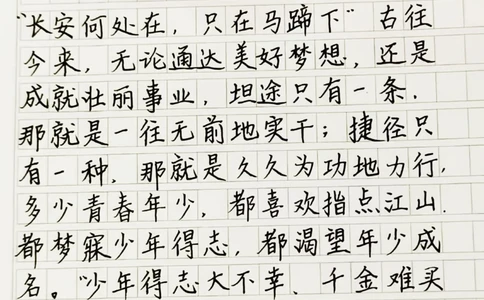 “长安何处在，只在马蹄下”古往
今来，无论通达美好梦想，还是
成就壮丽事业，坦途只有一条.
那就是一往无前地实干；捷径只
有一种，那就是久久为功地力行，
多少青春年少，都喜欢指点江山.
都梦寐少年得志，都渴望年少成
名。“少年得志大不幸、千金难买